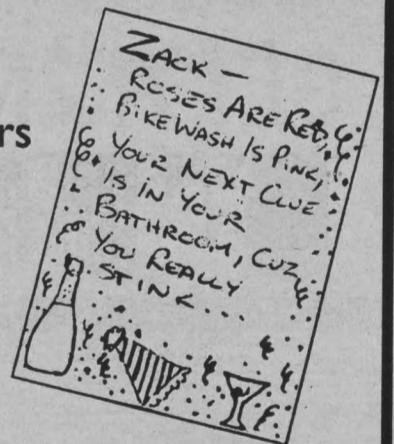 rs
ZACK —
ROSES ARE RED,
BIKEWASH IS PINK,
YOUR NEXT CLUE
IS IN YOUR
BATHROOM, CUZ
YOU REALLY
STINK...